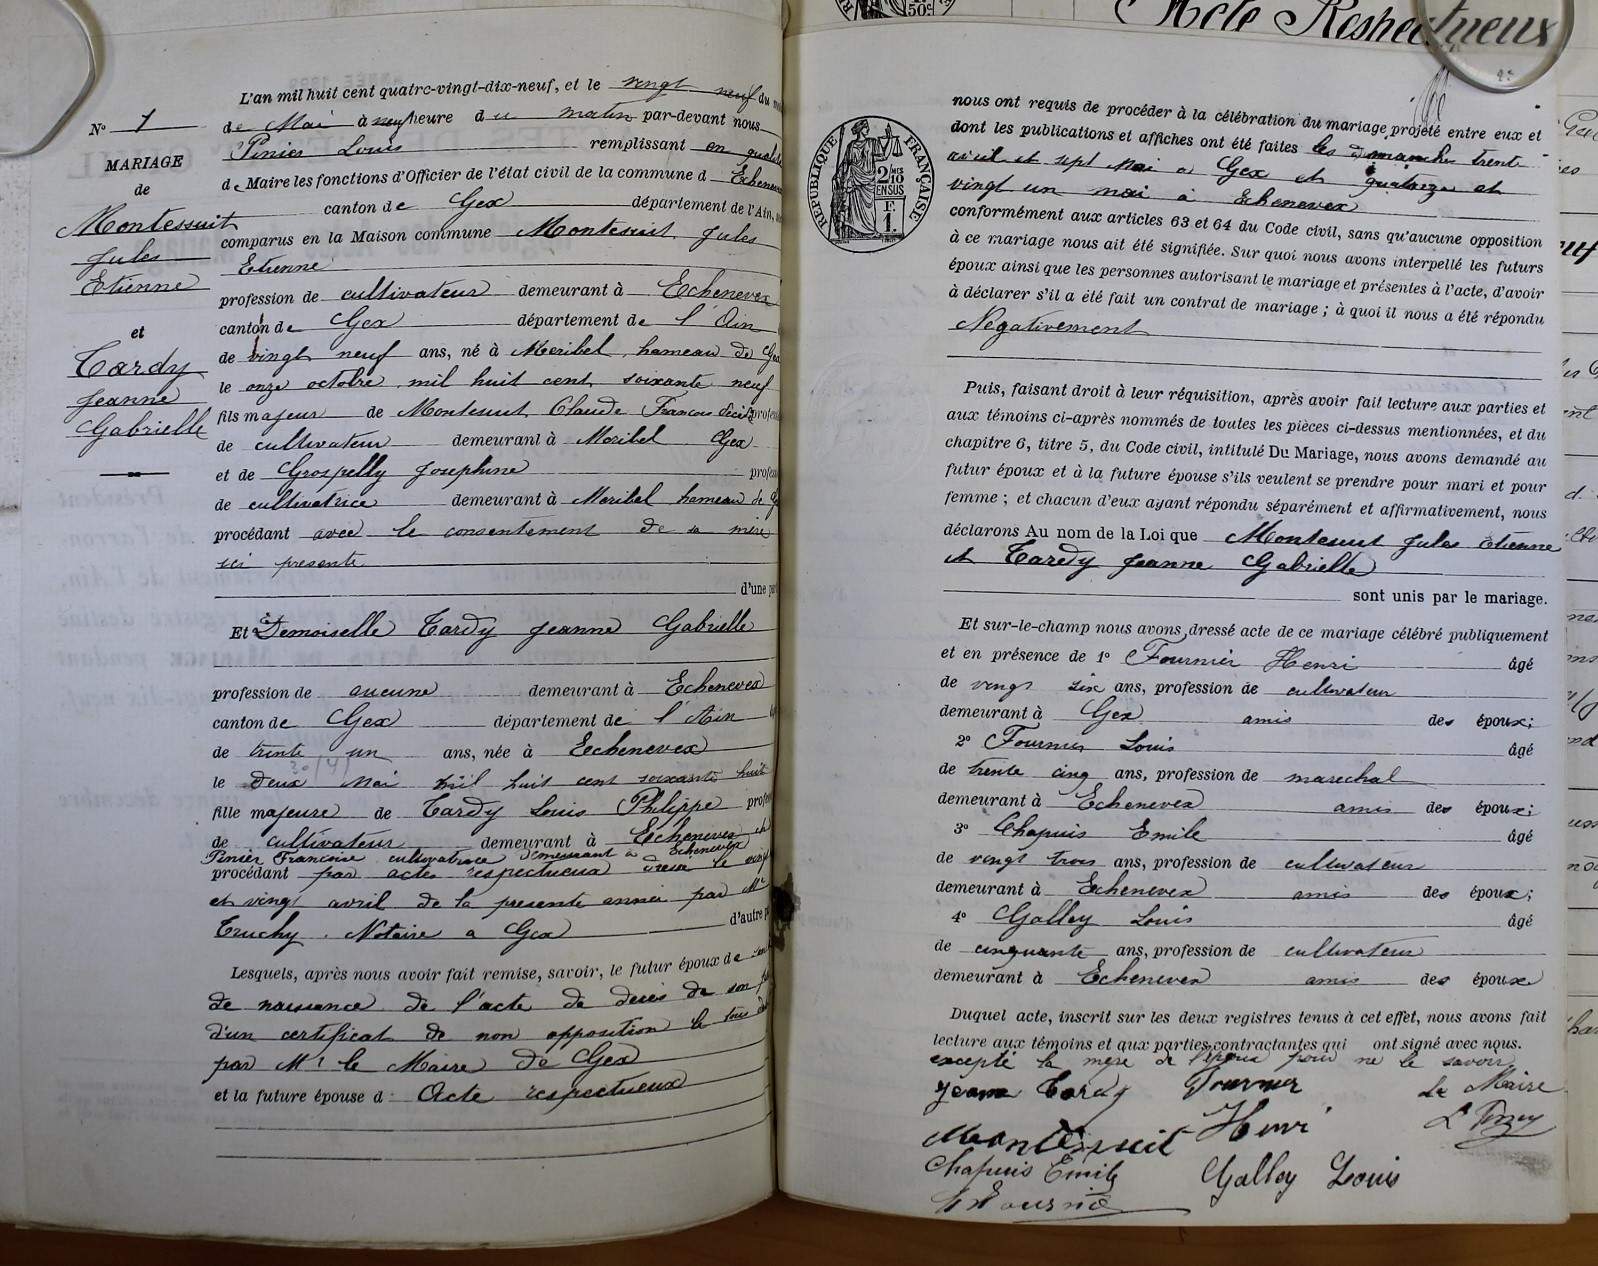 50c
Acte Respectueux
L'an mil huit cent quatre-vingt-dix-neuf, et le vingt neuf du
N° 1
de Mai à neuf heure du matin par-devant nous
Pinier Louis remplissant en qualité
MARIAGE
de Maire les fonctions d'Officier de l'état civil de la commune d Echenevex
de
canton de Gex département de l'Ain,
Montessuit
Jules
Etienne
comparus en la Maison commune Montessuit Jules
Etienne
profession de cultivateur demeurant à Echenevex
et
canton de Gex département de l'Ain
Tardy
Jeanne
Gabrielle
de vingt neuf ans, né à Meribel, hameau de Gex
le onze octobre mil huit cent soixante neuf
fils majeur de Montessuit Claude Francois décédé
de cultivateur demeurant à Moribel Gex
et de Grospelly Josephine
de cultivatrice demeurant à Moribel hameau de
procédant avec le consentement de sa mère
ici presente
d'une
Et Demoiselle Tardy Jeanne Gabrielle
profession de aucune demeurant à Echenevex
canton de Gex département de l'Ain
de trente un ans, née à Echenevex
le deux Mai mil huit cent soixante huit
fille majeure de Tardy Louis Philippe
de cultivateur demeurant à Echenevex et
Pinier Francoise cultivatrice demeurant à Echenevex
procédant par actes respectueux
et vingt avril de la presente année par Me
Truchy, Notaire a Gex d'autre
Lesquels, après nous avoir fait remise, savoir, le futur époux de
de naissance de l'acte de deces de son
d'un certificat de non opposition le tous
par Mr le Maire de Gex
et la future épouse d Acte respectueux
RÉPUBLIQUE FRANÇAISE
2/10 EN SUS
F
1.
nous ont requis de procéder à la célébration du mariage projeté entre eux et
dont les publications et affiches ont été faites les dimanches trente
avril et sept mai a Gex et quatorze et
vingt un mai à Echenevex
conformément aux articles 63 et 64 du Code civil, sans qu'aucune opposition
à ce mariage nous ait été signifiée. Sur quoi nous avons interpellé les futurs
époux ainsi que les personnes autorisant le mariage et présentes à l'acte, d'avoir
à déclarer s'il a été fait un contrat de mariage ; à quoi il nous a été répondu
Negativement
Puis, faisant droit à leur réquisition, après avoir fait lecture aux parties et
aux témoins ci-après nommés de toutes les pièces ci-dessus mentionnées, et du
chapitre 6, titre 5, du Code civil, intitulé Du Mariage, nous avons demandé au
futur époux et à la future épouse s'ils veulent se prendre pour mari et pour
femme ; et chacun d'eux ayant répondu séparément et affirmativement, nous
déclarons Au nom de la Loi que Montessuit Jules Etienne
et Tardy Jeanne Gabrielle
sont unis par le mariage.
Et sur-le-champ nous avons dressé acte de ce mariage célébré publiquement
et en présence de 1° Fournier Henri âgé
de vingt six ans, profession de cultivateur
demeurant à Gex amis des époux;
2° Fournier Louis âgé
de trente cinq ans, profession de marechal
demeurant à Echenevex amis des époux;
3° Chapuis Emile âgé
de vingt trois ans, profession de cultivateur
demeurant à Echenevex amis des époux;
4° Galley Louis âgé
de cinquante ans, profession de cultivateur
demeurant à Echenevex amis des époux
Duquel acte, inscrit sur les deux registres tenus à cet effet, nous avons fait
lecture aux témoins et aux parties contractantes qui ont signé avec nous.
excepté la mere de l'époux pour ne le savoir
Jeanne Tardy Fournier Le Maire
Montessuit Henri
Chapuis Emile Galley Louis